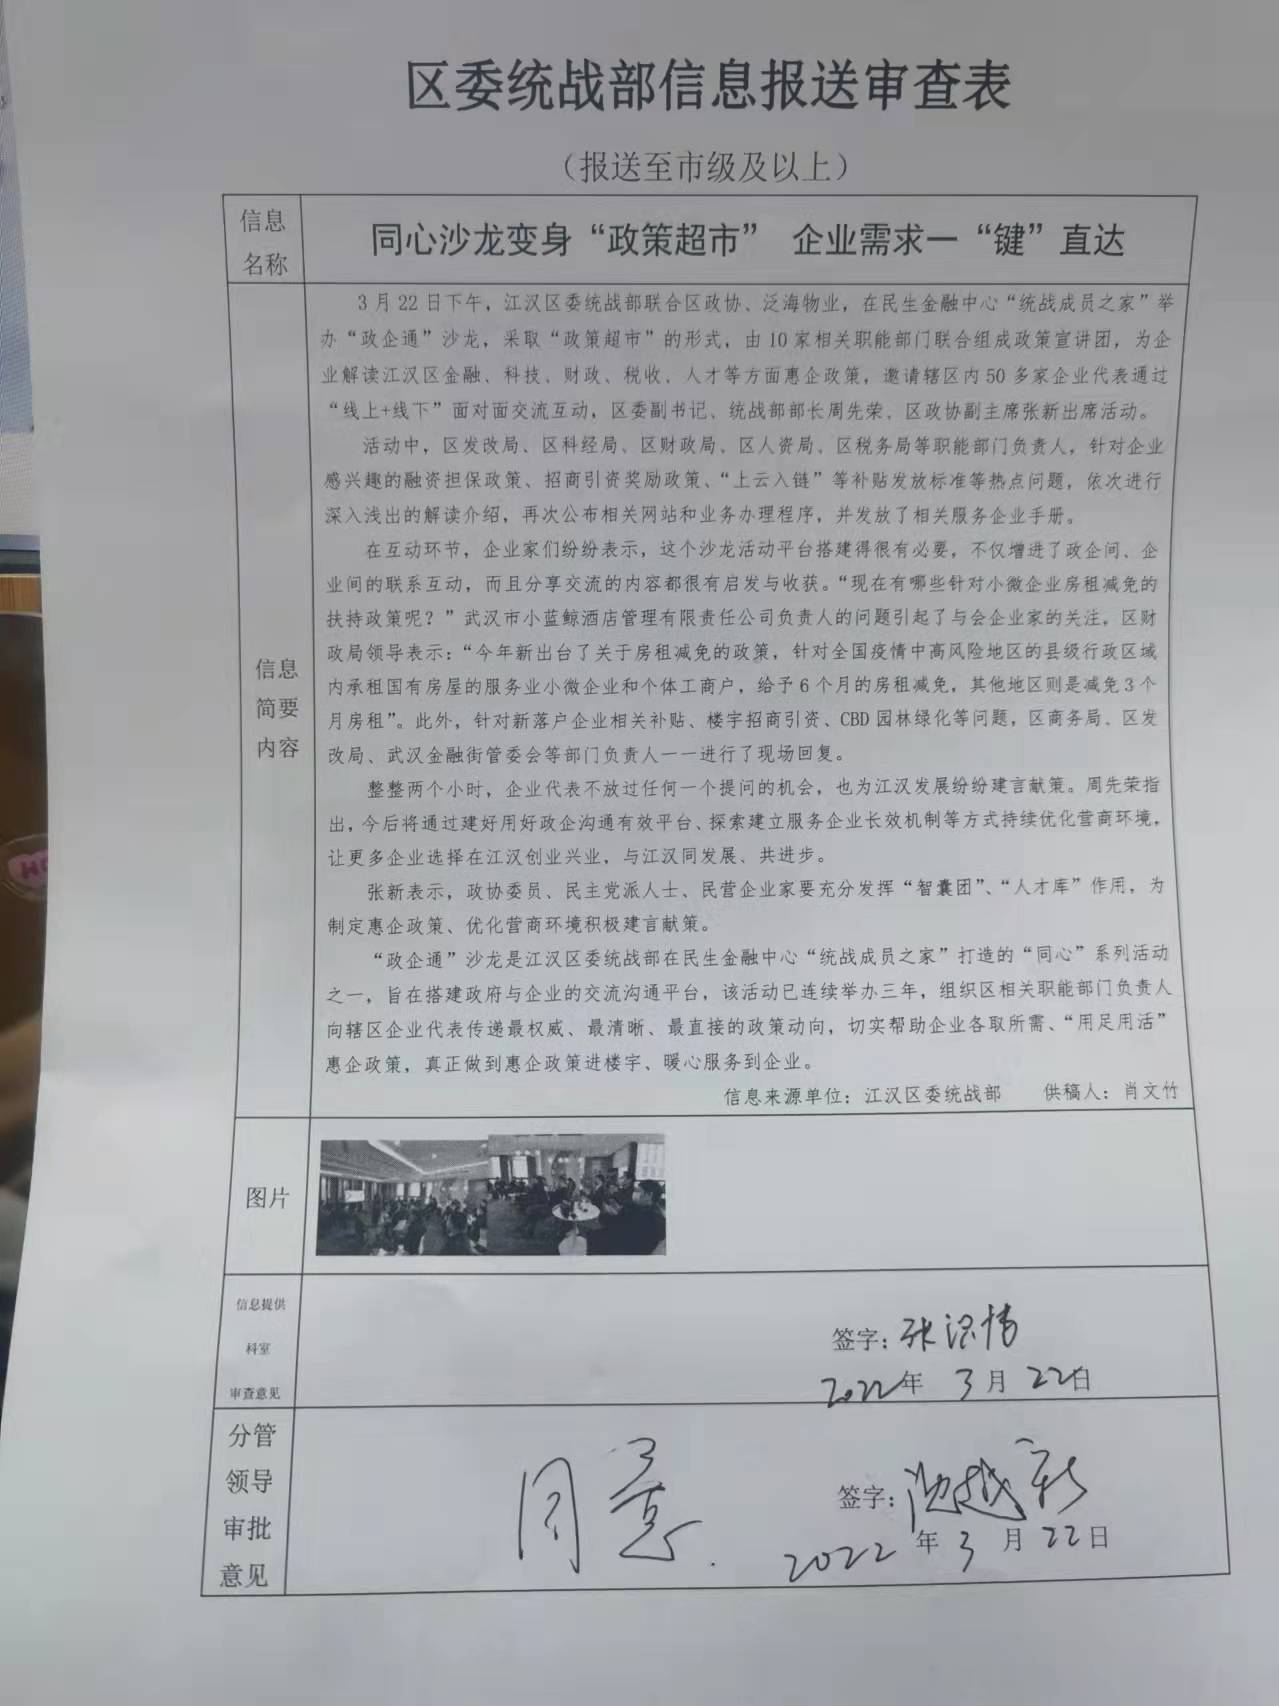 区委统战部信息报送审查表
（报送至市级及以上）
信息
名称
同心沙龙变身“政策超市” 企业需求一“键”直达
信息
简要
内容
3月22日下午，江汉区委统战部联合区政协、泛海物业，在民生金融中心“统战成员之家”举
办“政企通”沙龙，采取“政策超市”的形式，由10家相关职能部门联合组成政策宣讲团，为企
业解读江汉区金融、科技、财政、税收、人才等方面惠企政策，邀请辖区内50多家企业代表通过
“线上+线下”面对面交流互动，区委副书记、统战部部长周先荣、区政协副主席张新出席活动。
活动中，区发改局、区科经局、区财政局、区人资局、区税务局等职能部门负责人，针对企业
感兴趣的融资担保政策、招商引资奖励政策、“上云入链”等补贴发放标准等热点问题，依次进行
深入浅出的解读介绍，再次公布相关网站和业务办理程序，并发放了相关服务企业手册。
在互动环节，企业家们纷纷表示，这个沙龙活动平台搭建得很有必要，不仅增进了政企间、企
业间的联系互动，而且分享交流的内容都很有启发与收获。“现在有哪些针对小微企业房租减免的
扶持政策呢？”武汉市小蓝鲸酒店管理有限责任公司负责人的问题引起了与会企业家的关注，区财
政局领导表示：“今年新出台了关于房租减免的政策，针对全国疫情中高风险地区的县级行政区域
内承租国有房屋的服务业小微企业和个体工商户，给予6个月的房租减免，其他地区则是减免3个
月房租”。此外，针对新落户企业相关补贴、楼宇招商引资、CBD园林绿化等问题，区商务局、区发
改局、武汉金融街管委会等部门负责人一一进行了现场回复。
整整两个小时，企业代表不放过任何一个提问的机会，也为江汉发展纷纷建言献策。周先荣指
出，今后将通过建好用好政企沟通有效平台、探索建立服务企业长效机制等方式持续优化营商环境，
让更多企业选择在江汉创业兴业，与江汉同发展、共进步。
张新表示，政协委员、民主党派人士、民营企业家要充分发挥“智囊团”、“人才库”作用，为
制定惠企政策、优化营商环境积极建言献策。
“政企通”沙龙是江汉区委统战部在民生金融中心“统战成员之家”打造的“同心”系列活动
之一，旨在搭建政府与企业的交流沟通平台，该活动已连续举办三年，组织区相关职能部门负责人
向辖区企业代表传递最权威、最清晰、最直接的政策动向，切实帮助企业各取所需、“用足用活”
惠企政策，真正做到惠企政策进楼宇、暖心服务到企业。
信息来源单位：江汉区委统战部 供稿人：肖文竹
图片
信息提供
科室
审查意见
签字：张
2022年 3月 22日
分管
领导
审批
意见
同意.
签字：
2022年 3月 22日